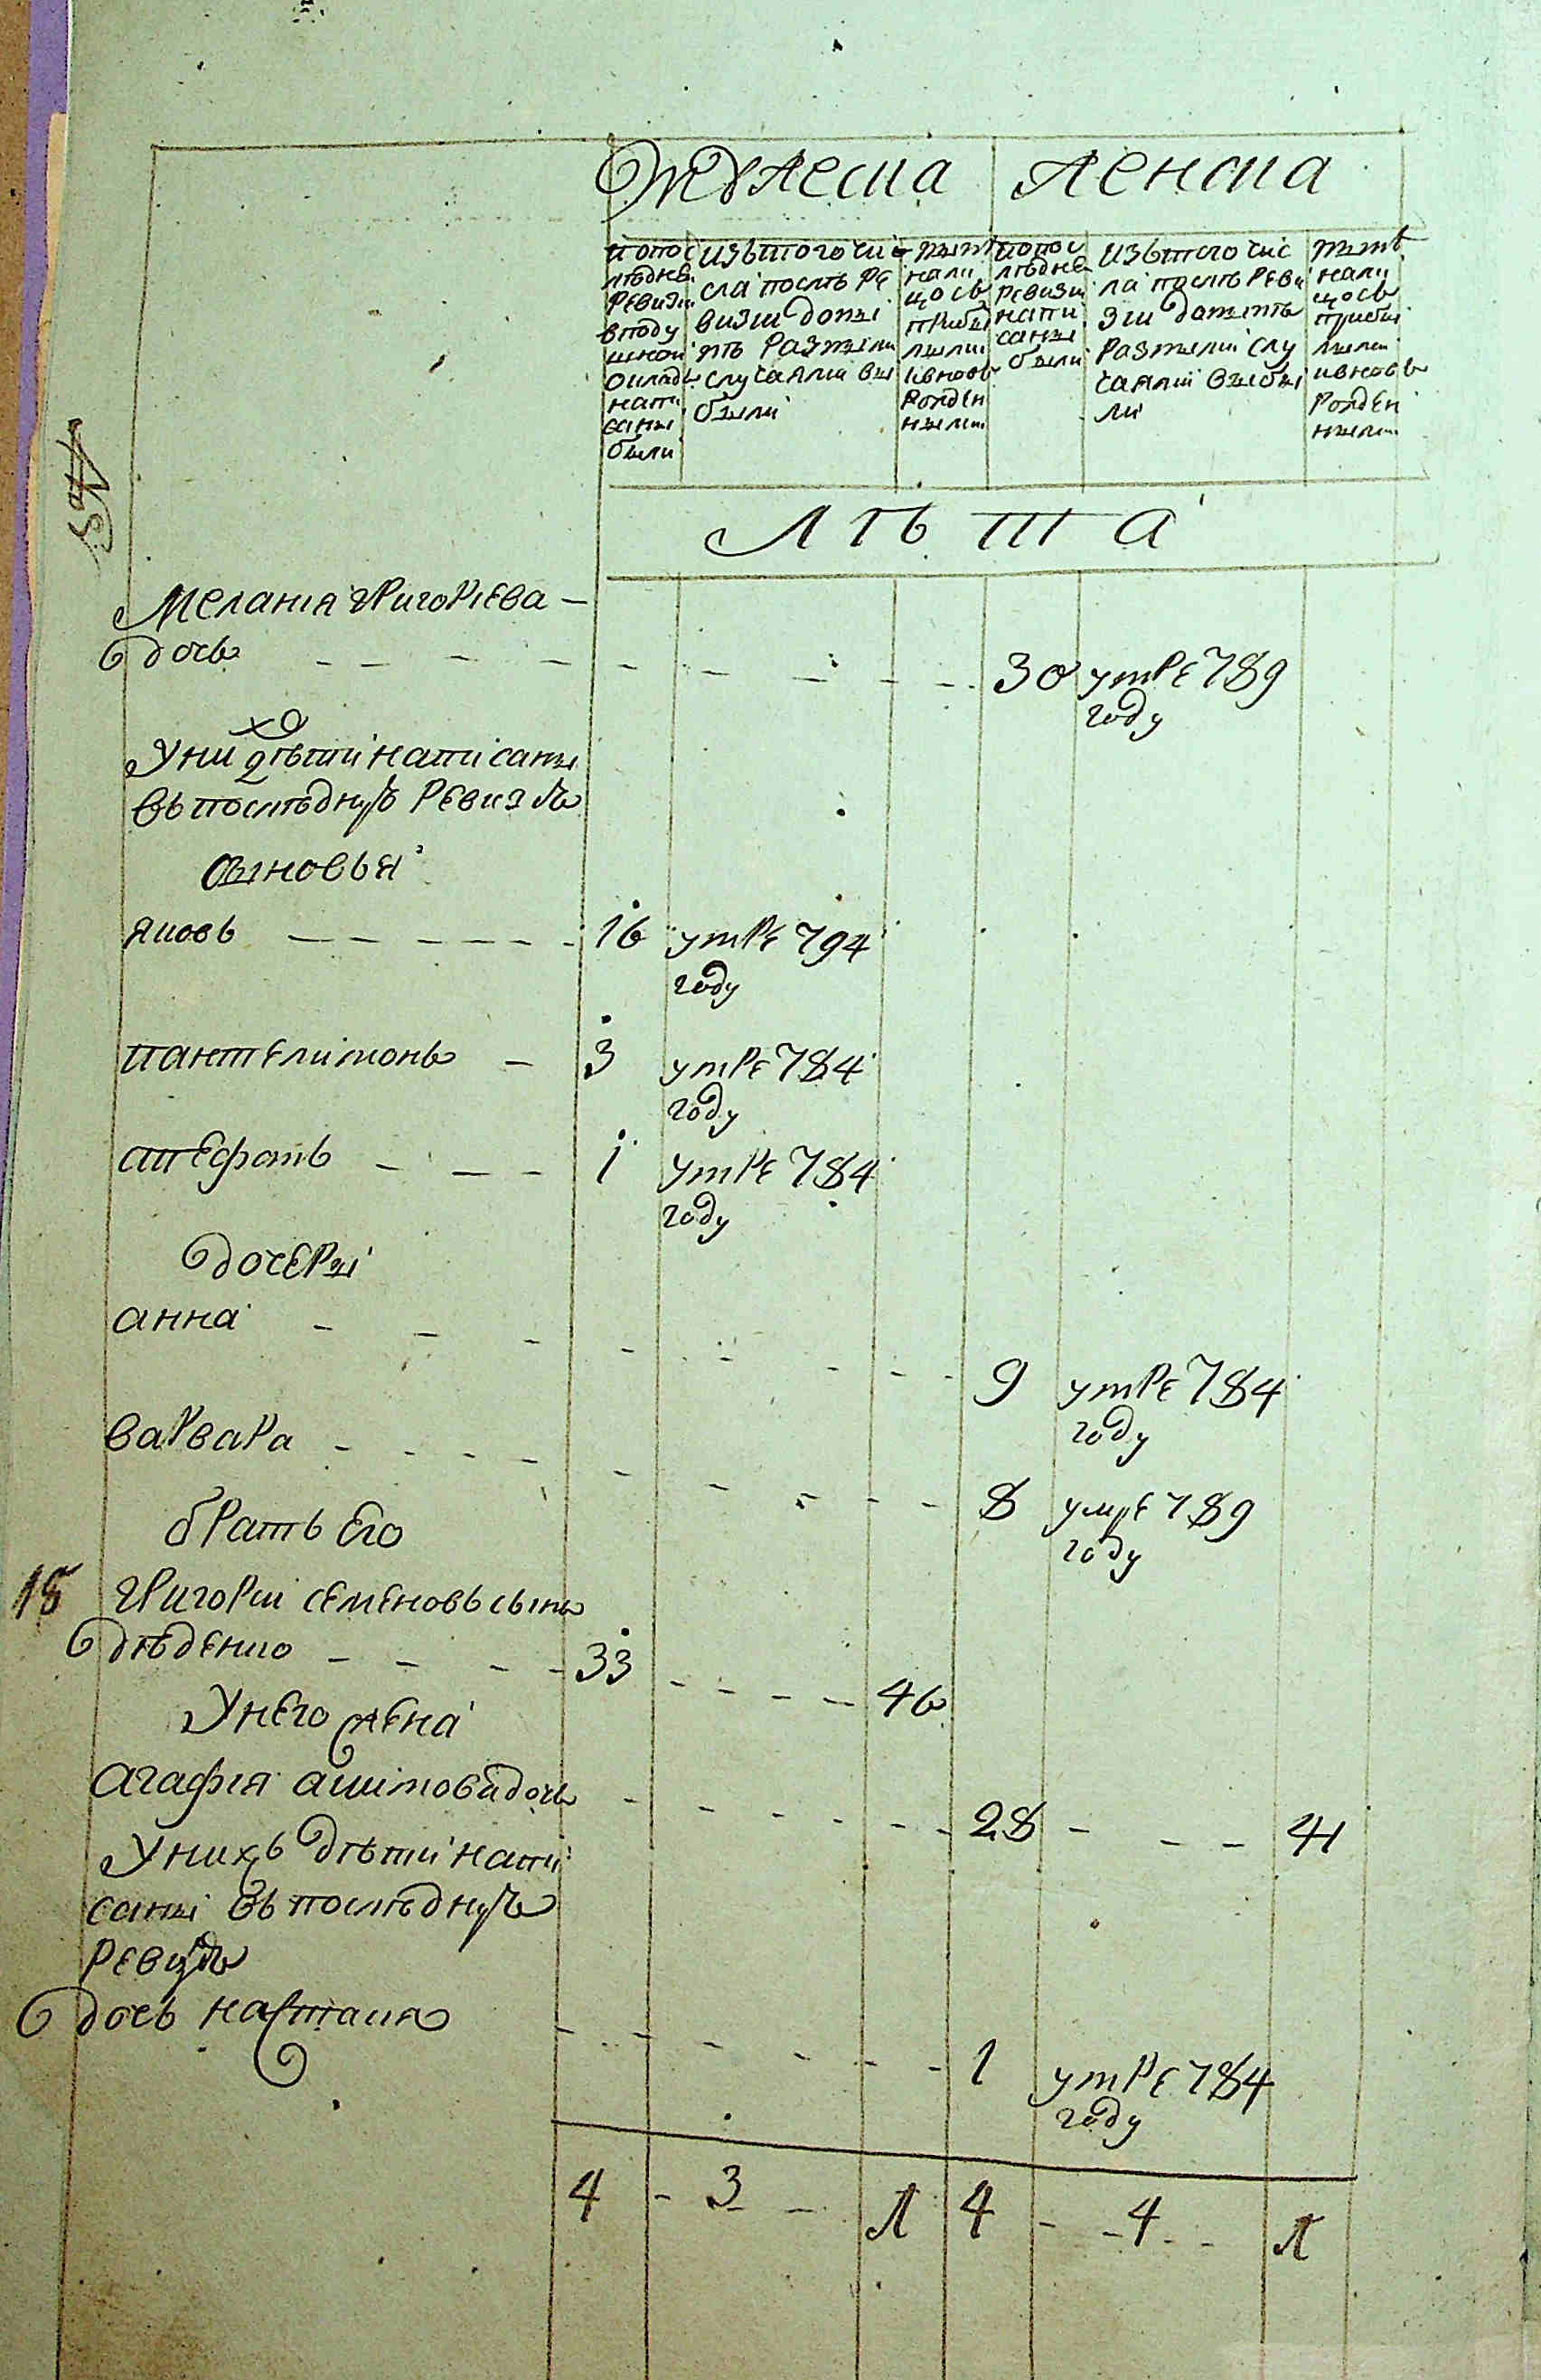 Мужеска Женска
По пос
лѣдней
Ревизи
в поду
шном
окладѣ
напи
саны
были
изъ того чис
ла послѣ Ре
визии выны
нѣ Разными
случаями вы
были
нынѣ
на лиц
цо съ
прибы
лыми
и вновь
Рожден
ными
по пос
лѣдней
Ревизи
напи
саны
были
изъ того чис
ла послѣ Реви
зии
Разными слу
чаями выбы
ли
нынѣ
на лиц
цо съ
прибы
лыми
и вновь
Рожден
ными
Лѣта
Мелания Григориева
дочь 30 умре 789
году
У них дѣти написаны
въ последную Ревизию
сыновья
Яковъ 16 умре 794
году
Пантелимонъ 3 умре 784
году
Стефанъ 1 умре 784
году
дочеры
анна 9 умре 784
году
варвара 8 умре 789
году
братъ Его
15 Григории Семеновъ сынъ
дѣденко 33 46
У него жена
Агафия Акимова дочь 28 41
У нихъ дѣти напи
саны въ последную
Ревизию
дочь Настася 1 умре 784
году
4 3 1 4 4 1